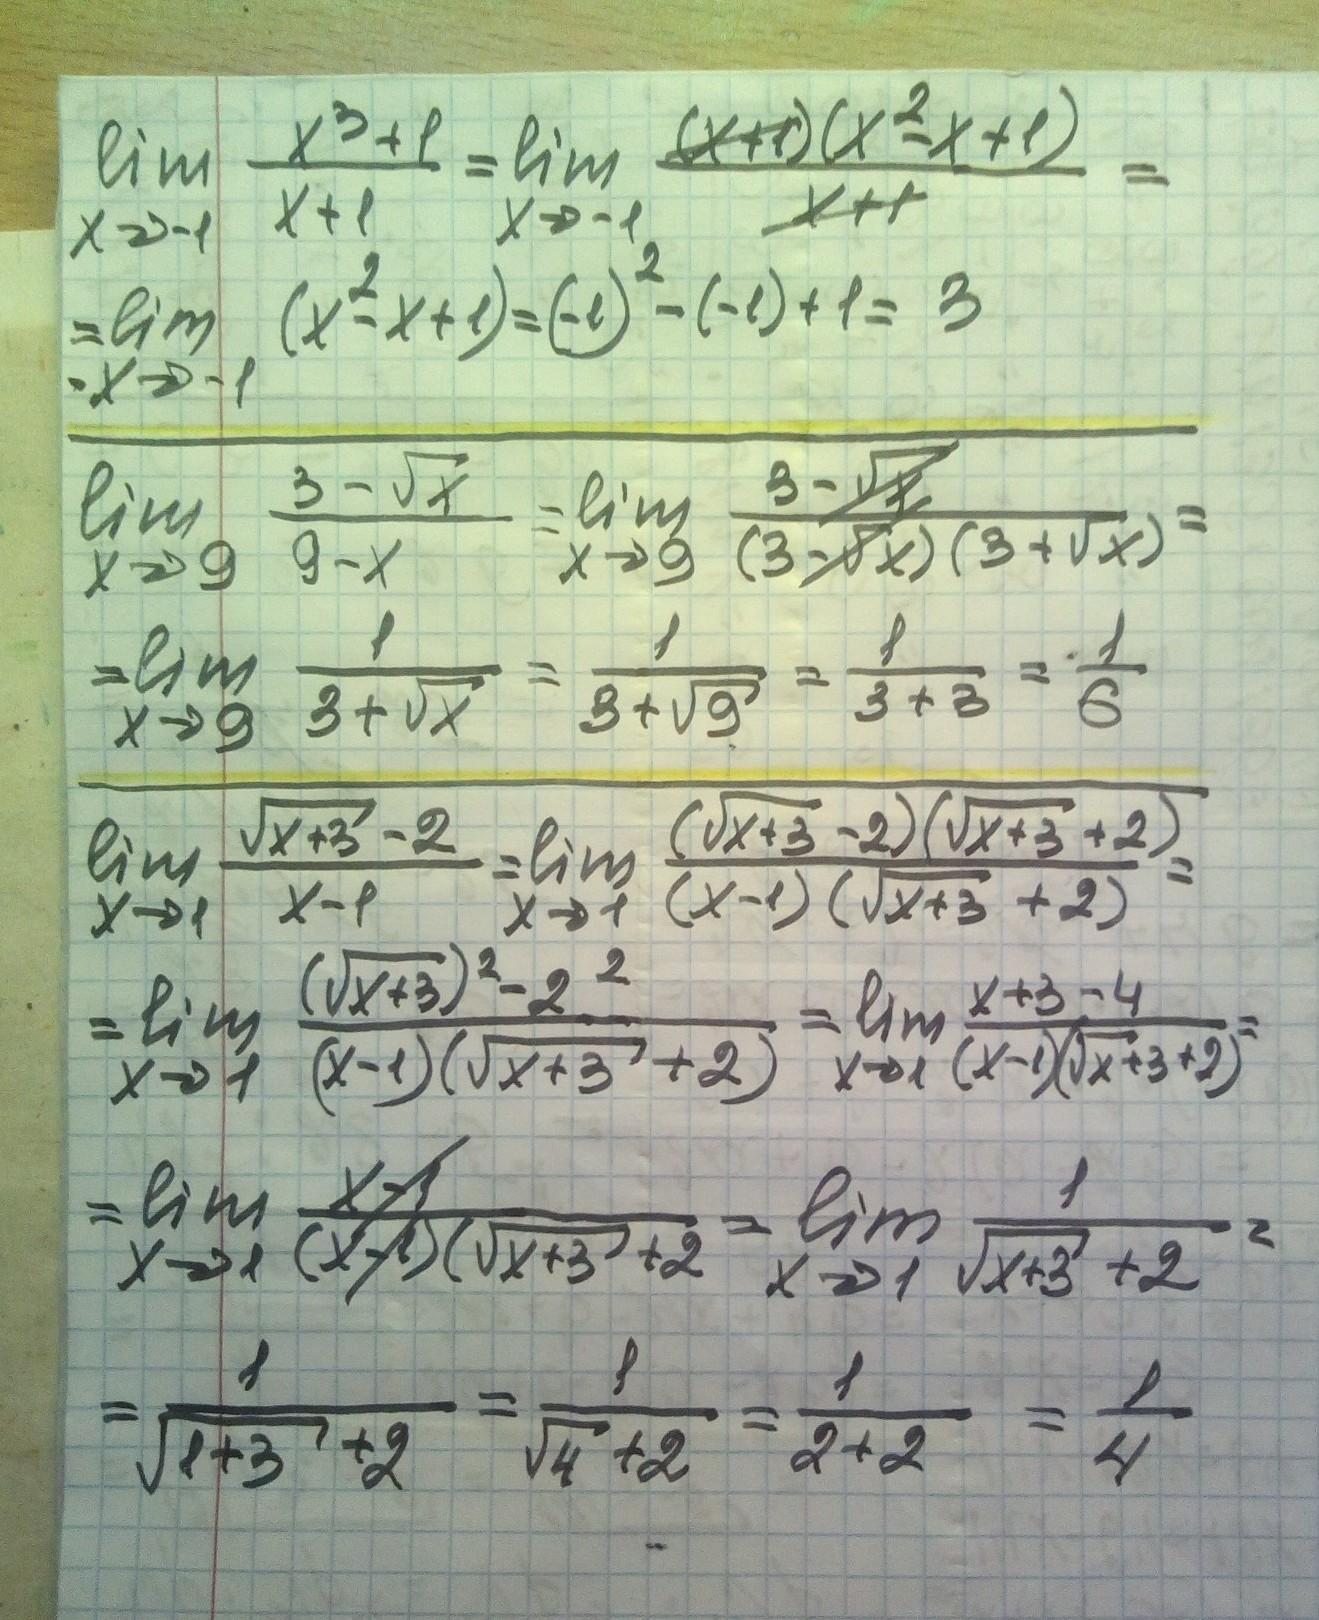 lim x→-1 (x³+1)/(x+1) = lim x→-1 (x+1)(x²-x+1)/(x+1) =
= lim x→-1 (x²-x+1) = (-1)² - (-1) + 1 = 3
lim x→9 (3-√x)/(9-x) = lim x→9 (3-√x)/((3-√x)(3+√x)) =
= lim x→9 1/(3+√x) = 1/(3+√9) = 1/(3+3) = 1/6
lim x→1 (√(x+3) -2)/(x-1) = lim x→1 (√(x+3) -2)(√(x+3) +2)/((x-1)(√(x+3) +2)) =
= lim x→1 ((√(x+3))² - 2²)/((x-1)(√(x+3) +2)) = lim x→1 (x+3-4)/((x-1)(√(x+3) +2)) =
= lim x→1 (x-1)/((x-1)(√(x+3) +2) = lim x→1 1/(√(x+3) +2) =
= 1/(√(1+3) +2) = 1/(√4 +2) = 1/(2+2) = 1/4